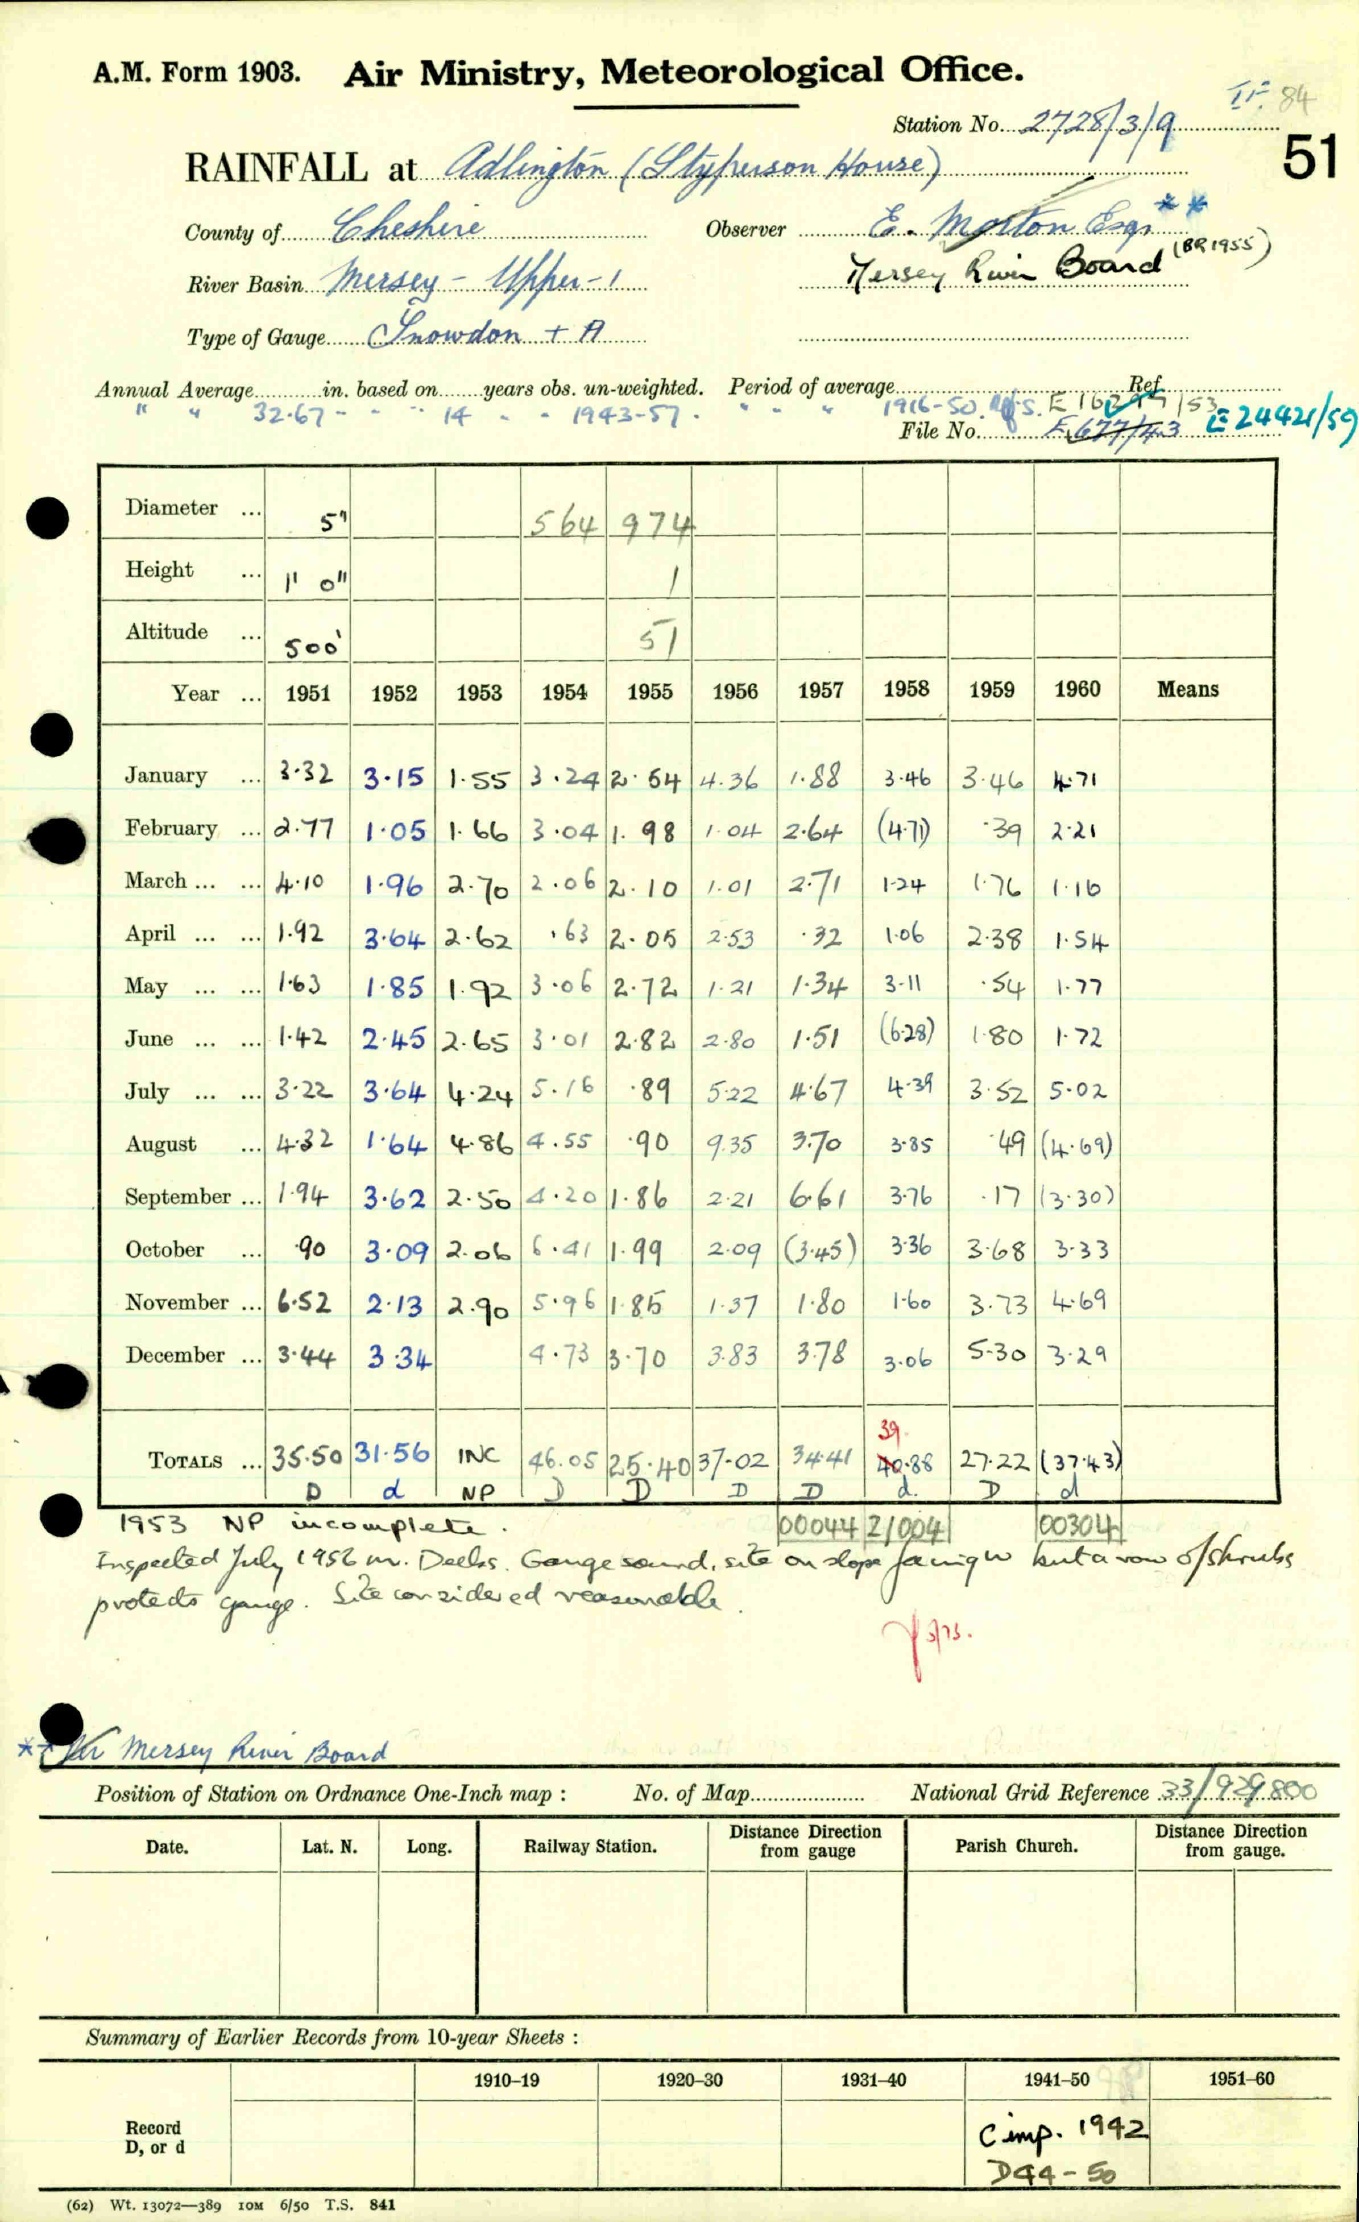 A.M. Form 1903. Air Ministry, Meteorological Office.
84
Station No. 2728/3/9
51
RAINFALL at Adlington (Styperson House)
County of Cheshire Observer E. Morton Esq. **
River Basin Mersey - Upper - 1 Mersey River Board (BR 1955)
Type of Gauge Snowdon + A
Annual Average in. based on years obs. un-weighted. Period of average Ref.
" " 32.67 - - - 14 - - 1943-57. " " " 1916-50. /53
File No. E 677/43 E24421/59
Diameter ... 5" 564 974
Height ... 1' 0" 1
Altitude ... 500' 51
Year ... 1951 1952 1953 1954 1955 1956 1957 1958 1959 1960 Means
January ... 3.32 3.15 1.55 3.24 2.54 4.36 1.88 3.46 3.46 4.71
February ... 2.77 1.05 1.66 3.04 1.98 1.04 2.64 (4.71) .39 2.21
March ... ... 4.10 1.96 2.70 2.06 2.10 1.01 2.71 1.24 1.76 1.16
April ... ... 1.92 3.64 2.62 .63 2.05 2.53 .32 1.06 2.38 1.54
May ... ... 1.63 1.85 1.92 3.06 2.72 1.21 1.34 3.11 .54 1.77
June ... ... 1.42 2.45 2.65 3.01 2.82 2.80 1.51 (6.28) 1.80 1.72
July ... ... 3.22 3.64 4.24 5.16 .89 5.22 4.67 4.39 3.52 5.02
August ... 4.32 1.64 4.86 4.55 .90 9.35 3.70 3.85 .49 (4.69)
September ... 1.94 3.62 2.50 4.20 1.86 2.21 6.61 3.76 .17 (3.30)
October ... .90 3.09 2.06 6.41 1.99 2.09 (3.45) 3.36 3.68 3.33
November ... 6.52 2.13 2.90 5.96 1.85 1.37 1.80 1.60 3.73 4.69
December ... 3.44 3.34 4.73 3.70 3.83 3.78 3.06 5.30 3.29
39.
TOTALS ... 35.50 31.56 INC 46.05 25.40 37.02 34.41 40.88 27.22 (37.43)
D d NP D D D D d. D d
1953 NP incomplete. 00044 21004 00304
Inspected July 1956 Mr. Deeks. Gauge sound, site on slope facing W but a row of shrubs
protects gauge. Site considered reasonable.
3/73.
** Mersey River Board
Position of Station on Ordnance One-Inch map : No. of Map National Grid Reference 33/929800
Date. Lat. N. Long. Railway Station. Distance Direction from gauge Parish Church. Distance Direction from gauge.
Summary of Earlier Records from 10-year Sheets :
1910–19 1920–30 1931–40 1941–50 1951–60
Record
D, or d
C imp. 1942
D44-50
(62) Wt. 13072—389 10M 6/50 T.S. 841